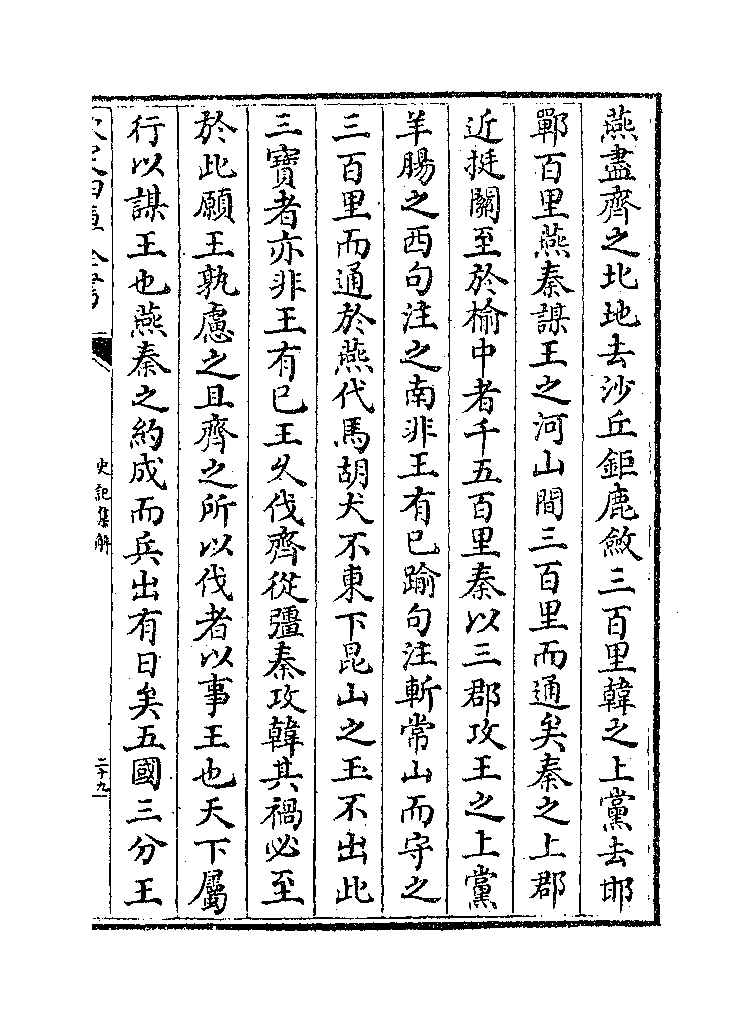 燕盡齊之北地去沙丘鉅鹿斂三百里韓之上黨去邯
鄲百里燕秦謀王之河山間三百里而通矣秦之上郡
近挺關至於榆中者千五百里秦以三郡攻王之上黨
羊腸之西句注之南非王有已踰句注斬常山而守之
三百里而通於燕代馬胡犬不東下昆山之玉不出此
三寶者亦非王有已王久伐齊從彊秦攻韓其禍必至
於此願王孰慮之且齊之所以伐者以事王也天下屬
行以謀王也燕秦之約成而兵出有日矣五國三分王
史記集解
二十九